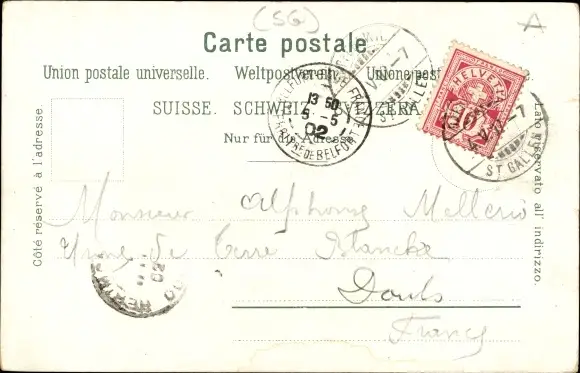 (SG)
A
Carte postale
Union postale universelle. Weltpostverein. Unione postale
SUISSE. SCHWEIZ. SVIZZERA.
Nur für die Adresse.
Côté réservé à l'adresse.
Lato riservato all' indirizzo.
HELVETIA
10
ST GALLEN
13 50
5-5
02
BELFORT
Monsieur Alphonse Mellerio
Usine de Terre Blanche
Doubs
France
02